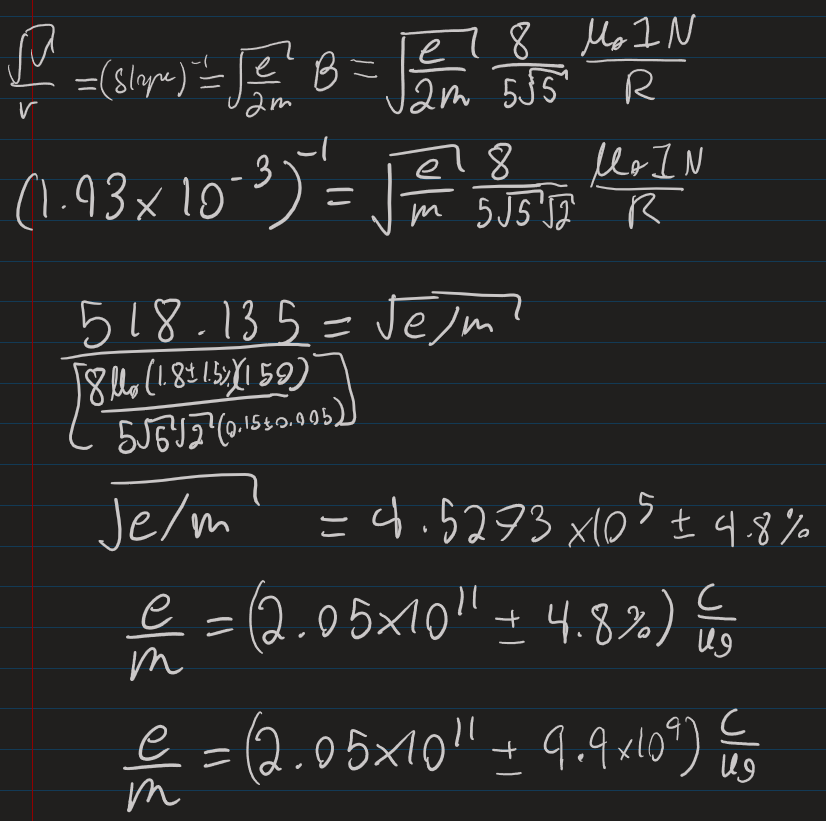 √V/r = (Slope)⁻¹ = √(e/2m) B = √(e/2m) 8/(5√5) μ₀IN/R
(1.93×10⁻³)⁻¹ = √(e/m) 8/(5√5√2) μ₀IN/R
518.135/[8μ₀(1.8±1.5%)(150)/(5√5√2(0.15±0.005))] = √(e/m)
√(e/m) = 4.5273×10⁵ ± 4.8%
e/m = (2.05×10¹¹ ± 4.8%) C/kg
e/m = (2.05×10¹¹ ± 9.9×10⁹) C/kg